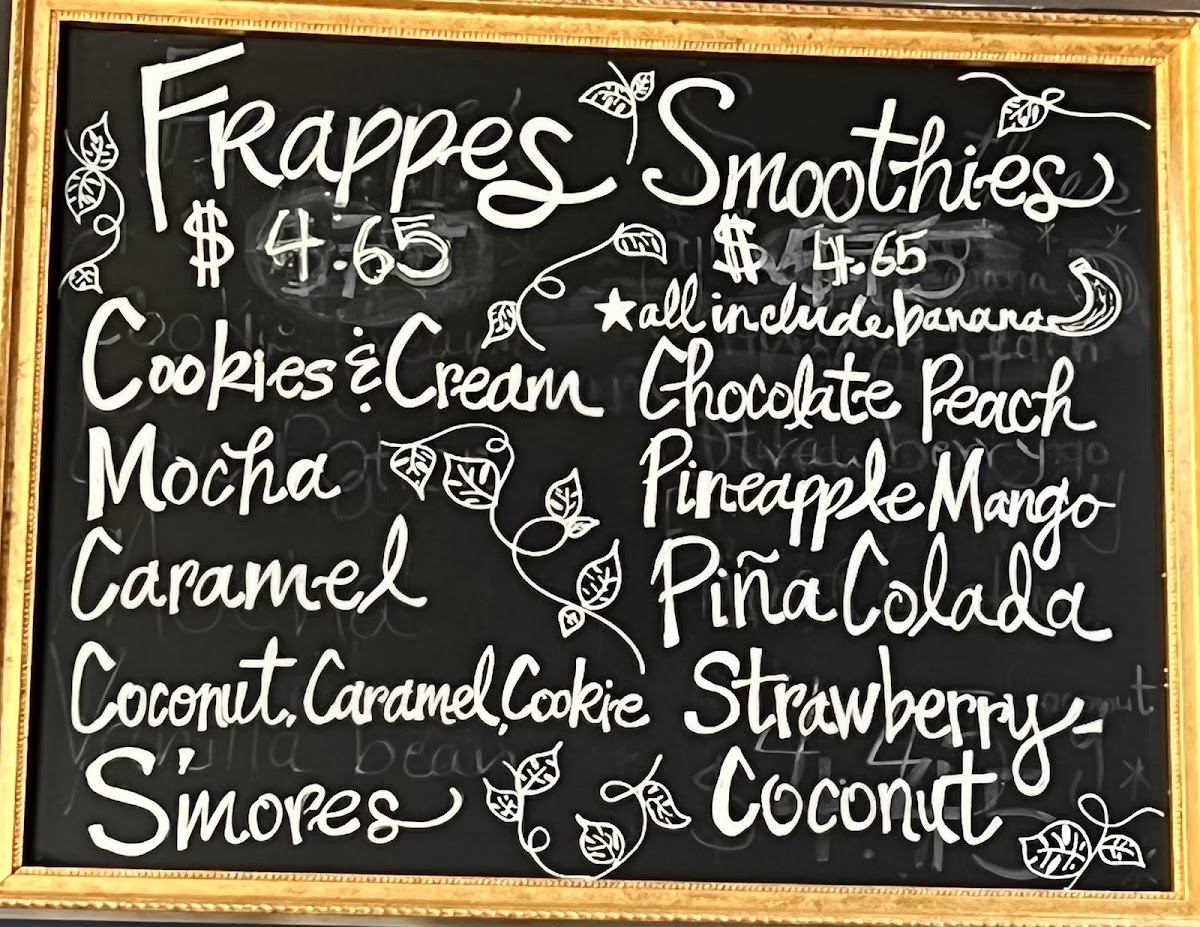 Frappes
$ 4.65
Cookies & Cream
Mocha
Caramel
Coconut, Caramel, Cookie
S'mores
Smoothies
$ 4.65
★all include banana
Chocolate Peach
Pineapple Mango
Piña Colada
Strawberry-
Coconut